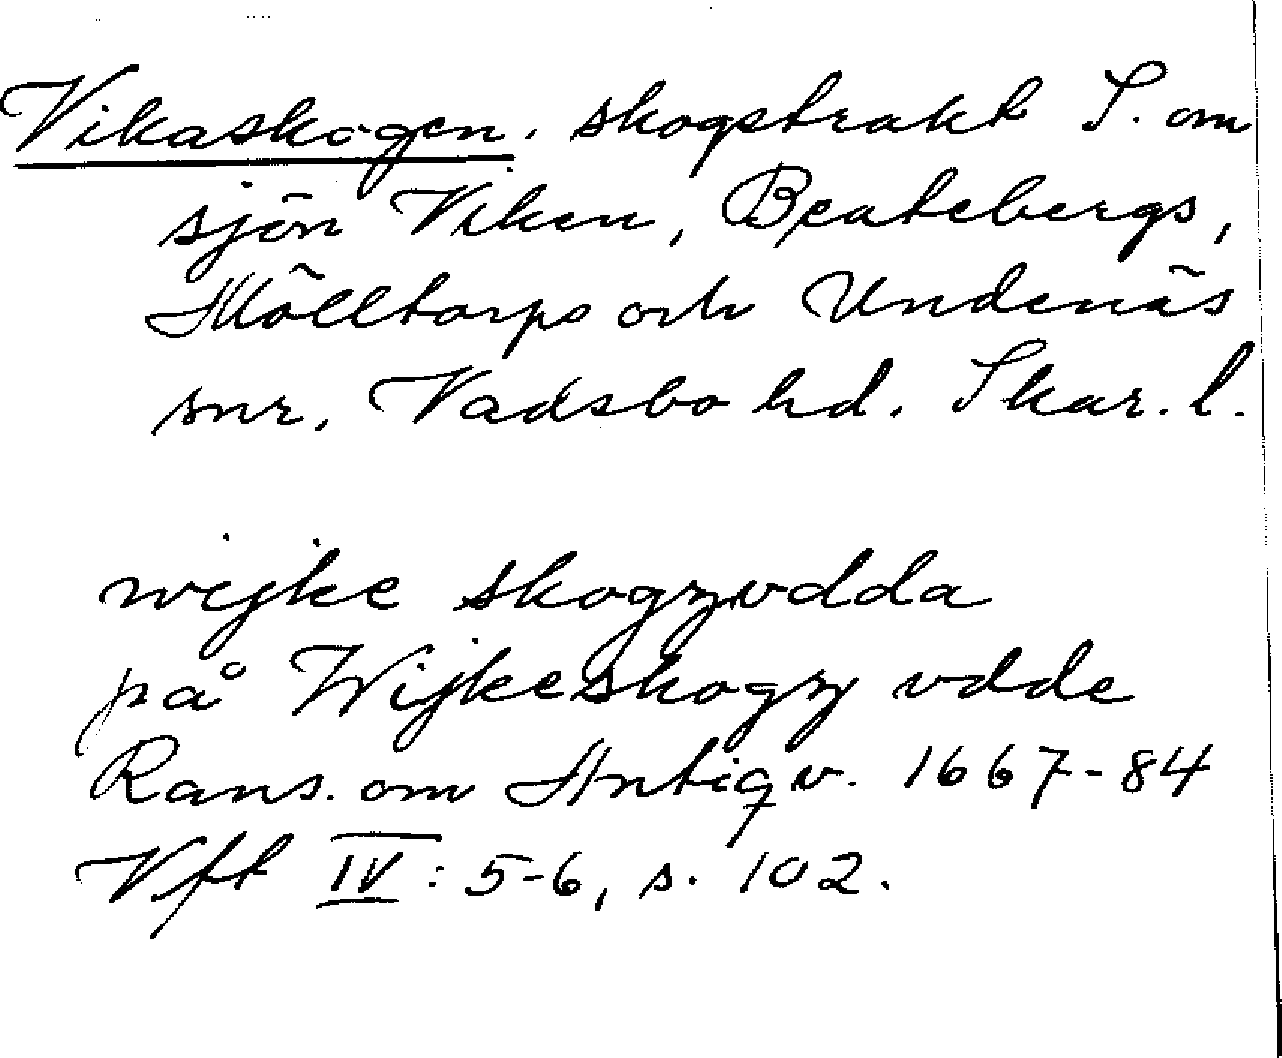 Vikaskogen. skogstrakt S. om
sjön Viken, Beatebergs,
Mölltorps och Undenäs
snr. Vadsbo hd. Skar. l.
wijke skogzvdda
på Wijkeskogz vdde
Rans. om Antiqv. 1667-84
Vft IV: 5-6, s. 102.